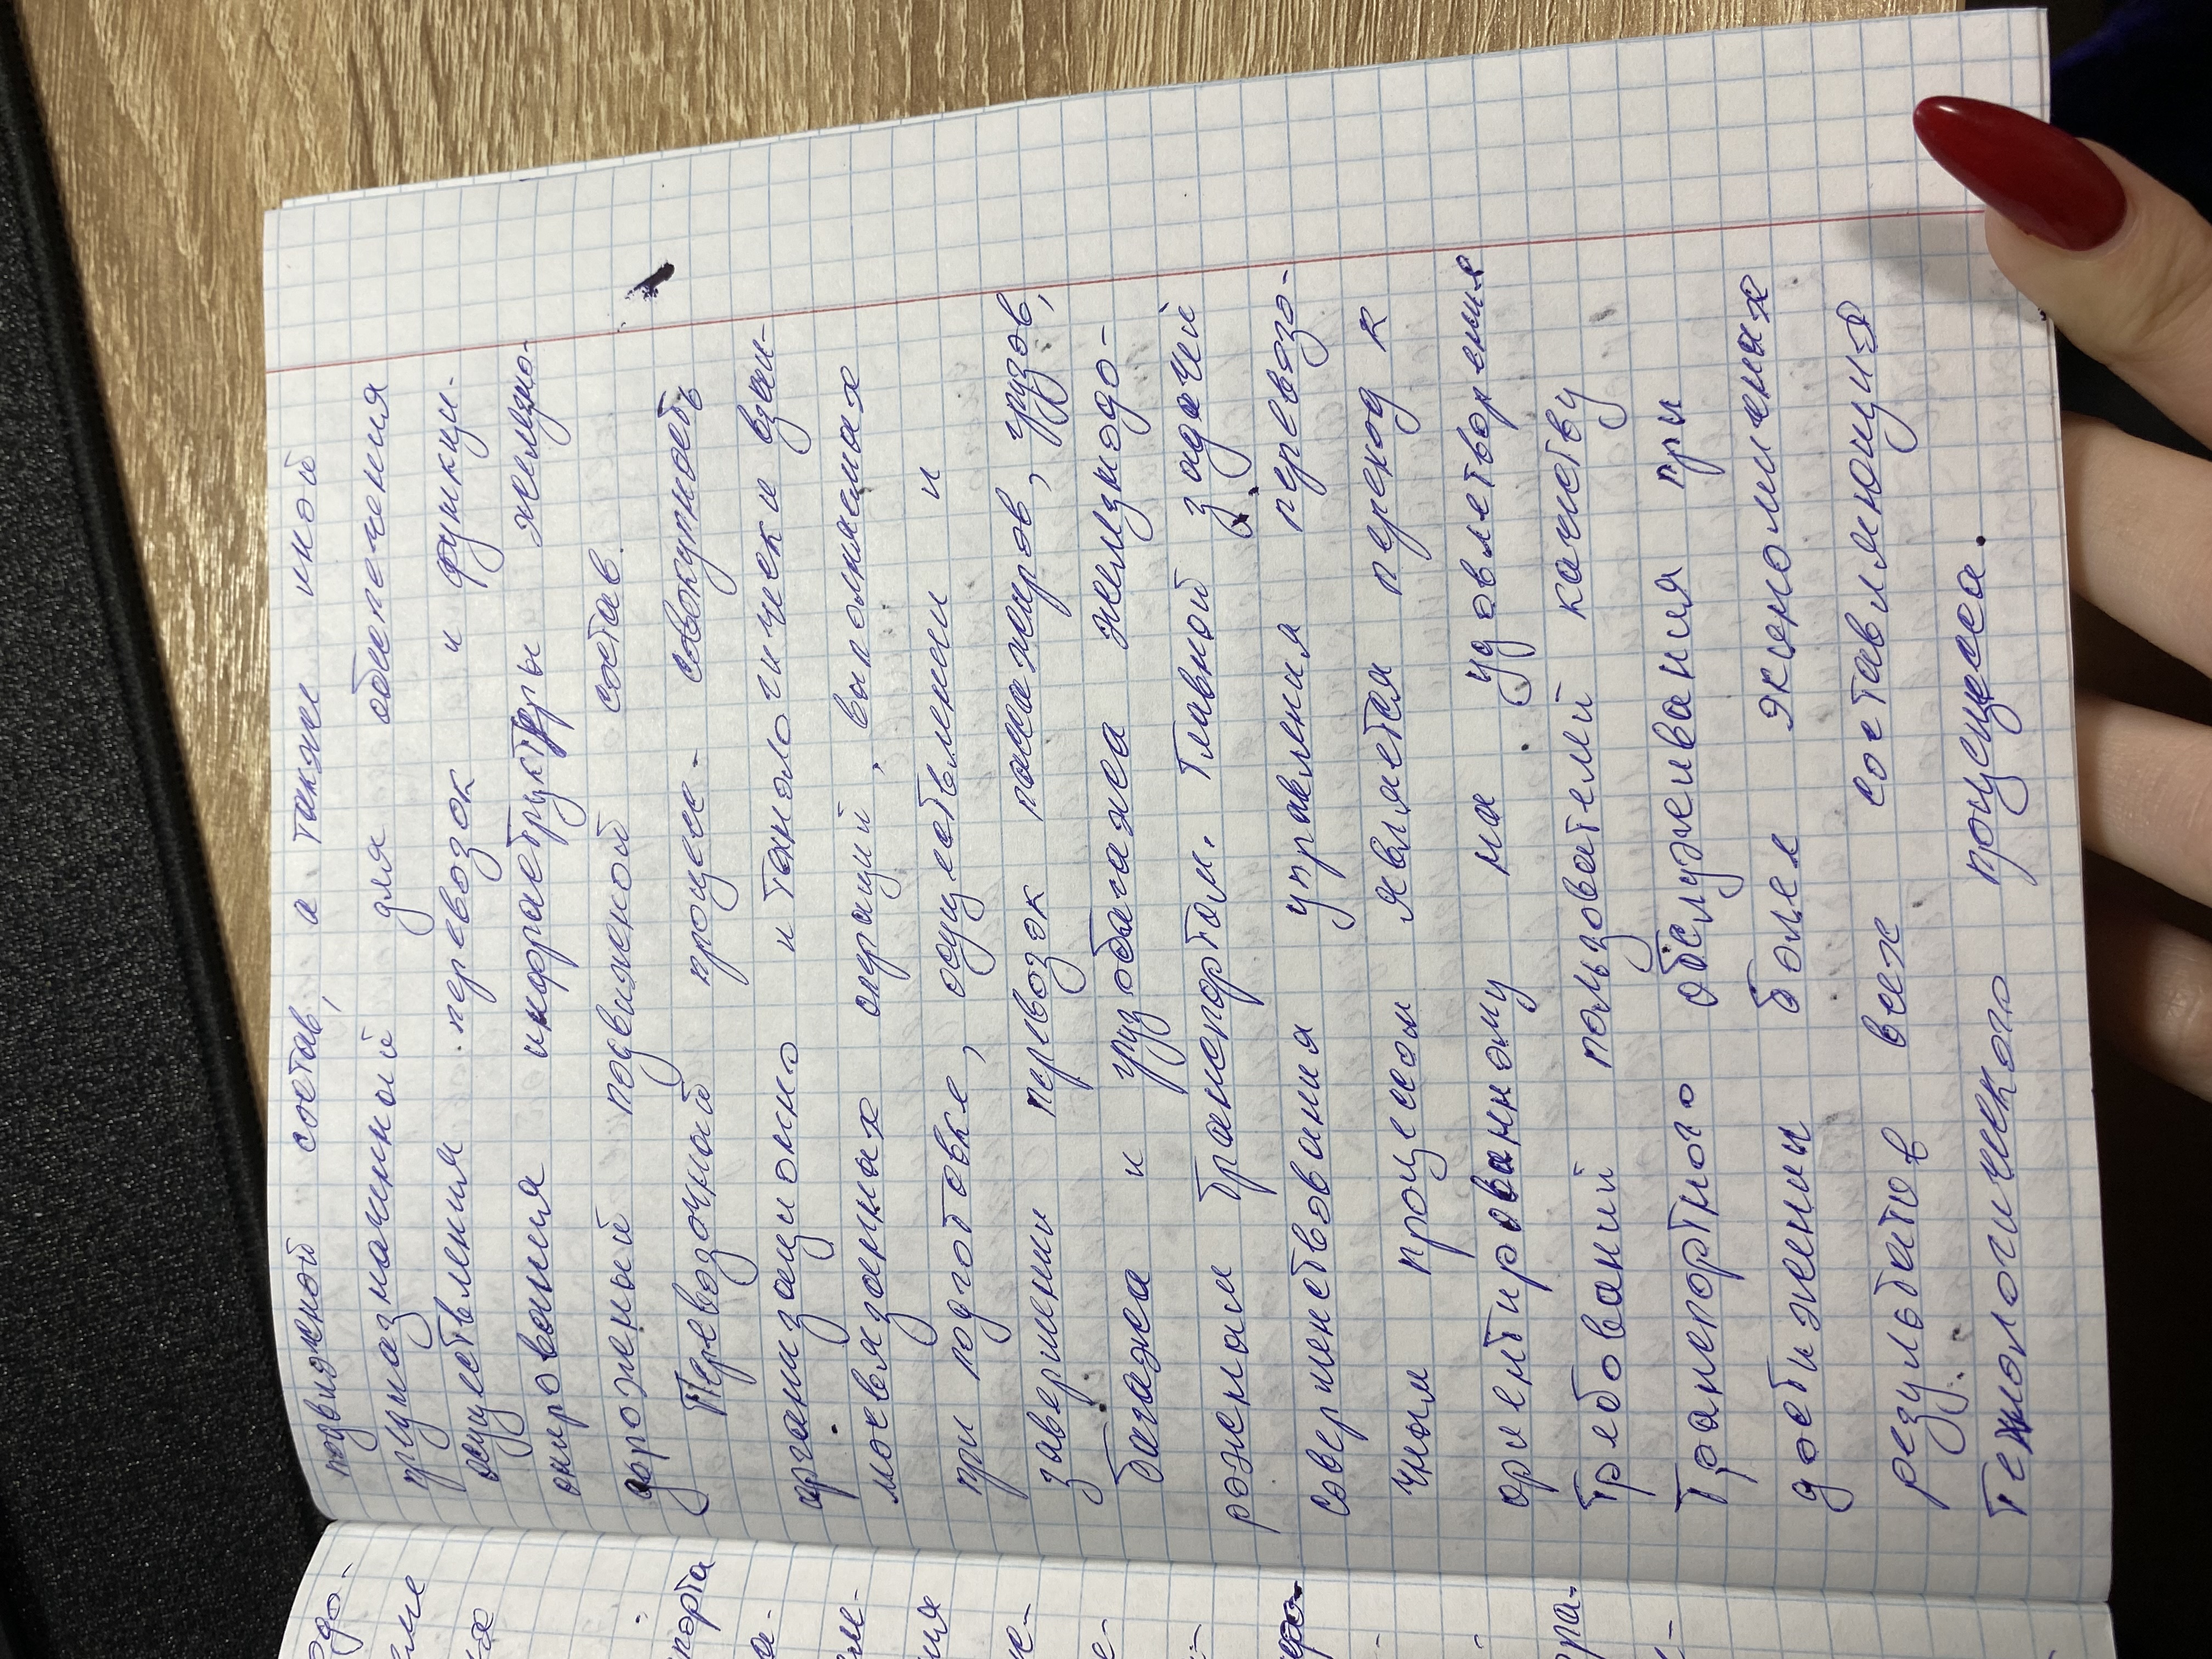 подвижной состав, а также иной
предназначенный для обеспечения
осуществления перевозок и функци-
онирования инфраструктуры железно-
дорожный подвижной состав.
Перевозочный процесс - совокупность
организационно и технологически взаи-
мосвязанных операций, выполняемых
при подготовке, осуществлении и
завершении перевозок пассажиров, грузов,
багажа и грузобагажа железнодо-
рожным транспортом. Главной задачей
совершенствования управления перевозо-
чным процессом является переход к
ориентированному на удовлетворения
требований пользователей качеству
транспортного обслуживания при
достижении более экономичных
результатов всех составляющих
технологического процесса.
порта